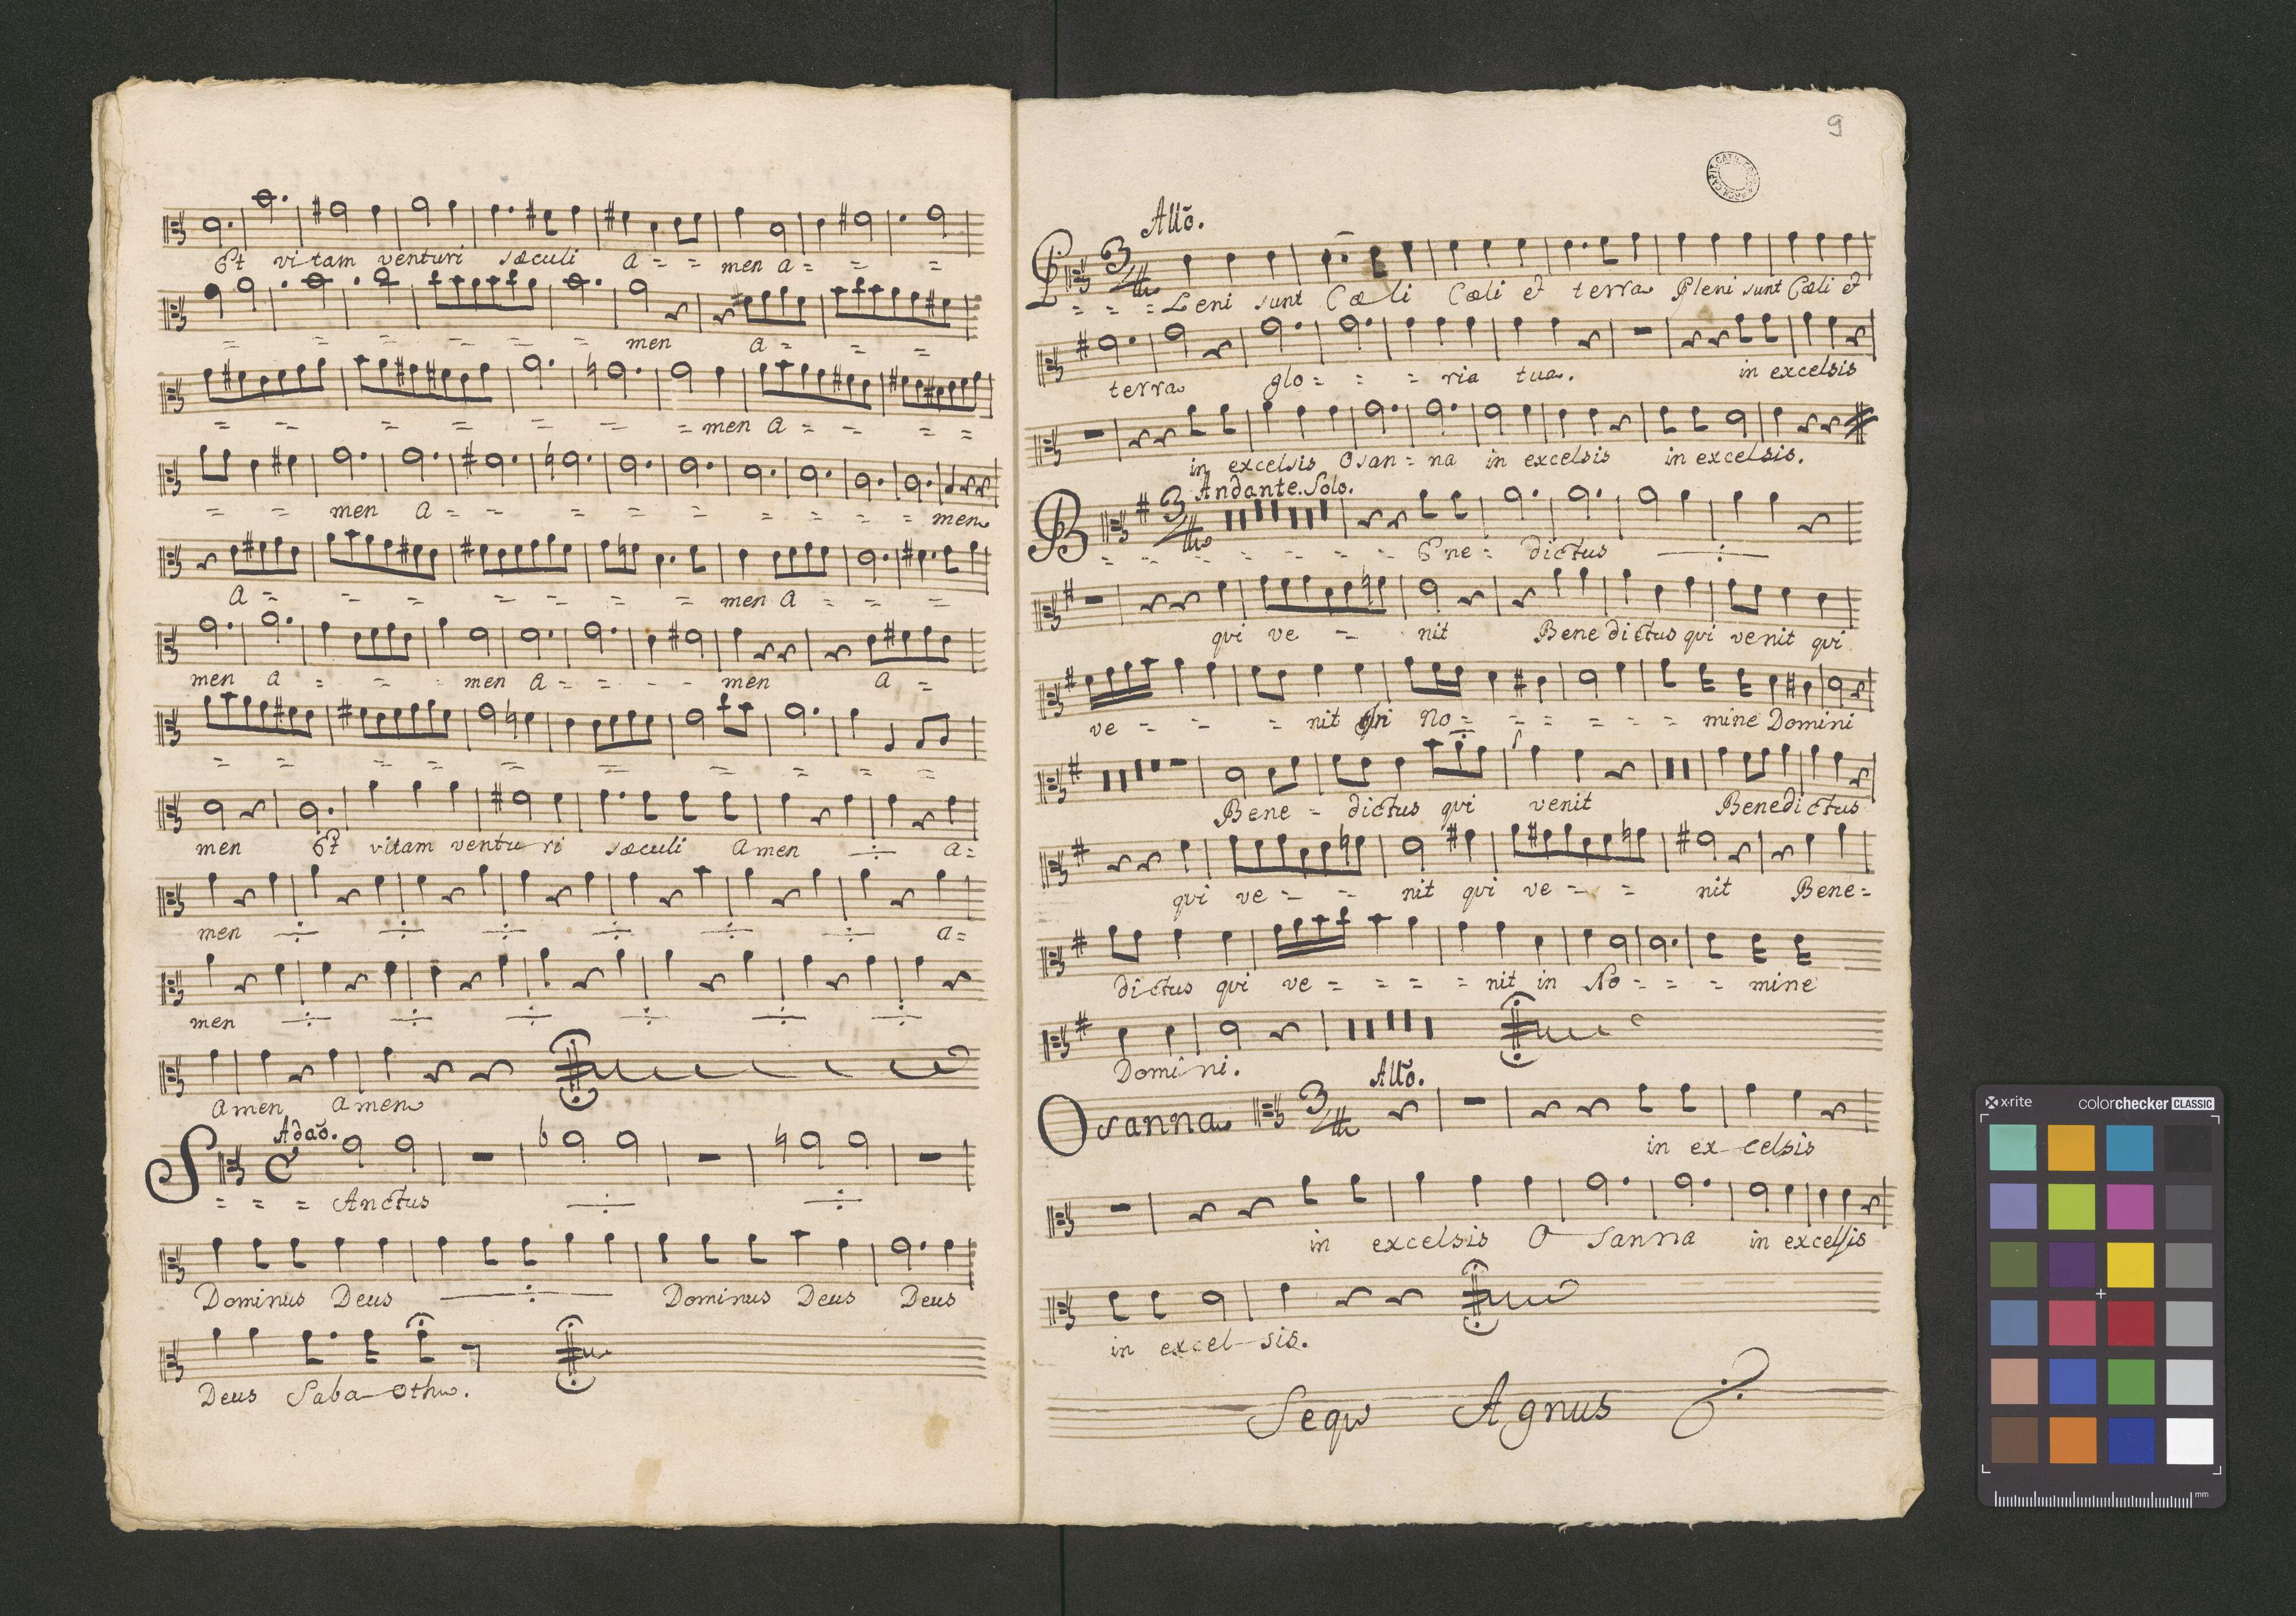 Et vi tam venturi sæculi a = = men a = = =
= = = = = = men a = = =
= = = = = = = men a = = = =
= = men a = = = = = = = = = men
a = = = = = = = men a = = =
men a = = = men a = = - - men a =
= = = = = = = = = =
men Et vitam ventu ri sæculi amen ÷ a=
men ÷ ÷ ÷ ÷ ÷ ÷ a=
men ÷ ÷ ÷ ÷ ÷ ÷
amen amen
Adaõ.
S = = = Anctus ÷ ÷
Dominus Deus ÷ Dominus Deus Deus
Deus Saba oth.
9
Allõ.
P = = = Leni sunt Cæ li Cæli et terra Pleni sunt Cæli et
terra glo = = = ria tua. in excelsis
in excelsis Osan = na in excelsis in excelsis.
Andante. Solo.
B = = = = = = = Ene = dictus ÷
qui ve = nit Bene dictus qui venit qui
ve = = = nit in No = = = = = = mine Domini
Bene = dictus qui venit Benedictus
qui ve = = nit qui ve = = nit Bene =
dictus qui ve = = = = nit in No = = = mine
Domini.
Allõ.
Osanna in ex celsis
in excelsis O sanna in excelsis
in excel sis.
Seqe Agnus
x-rite colorchecker CLASSIC
mm